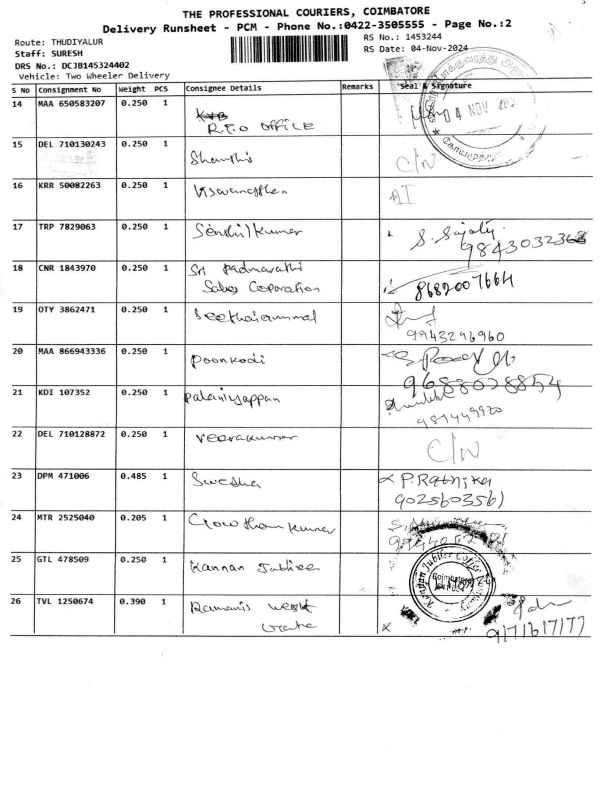 THE PROFESSIONAL COURIERS, COIMBATORE
Delivery Runsheet - PCM - Phone No.:0422-3505555 - Page No.:2
Route: THUDIYALUR
RS No.: 1453244
Staff: SURESH
RS Date: 04-Nov-2024
DRS No.: DCJB145324402
Vehicle: Two Wheeler Delivery
S No Consignment No Weight PCS Consignee Details Remarks Seal & Signature
14 MAA 650583207 0.250 1 R.T.O OFFICE 04 NOV
15 DEL 710130243 0.250 1 Shanthi C/N
16 KRR 50082263 0.250 1 Viswanathan AI
17 TRP 7829063 0.250 1 Senthilkumar
18 CNR 1843970 0.250 1 Sri Padmavathi
Sales Coporation 8682007664
19 OTY 3862471 0.250 1 Seethaiammal 9943296960
20 MAA 866943336 0.250 1 Poonkodi 9688028854
21 KDI 107352 0.250 1 Palaniyappan
22 DEL 710128872 0.250 1 Veerakumar C/N
23 DPM 471006 0.485 1 P.Rathika
9025603561
24 MTR 2525040 0.205 1 Gowtham Kumar
25 GTL 478509 0.250 1 Kannan Jubilee Coimbatore
26 TVL 1250674 0.390 1 Ramanis 9171617177